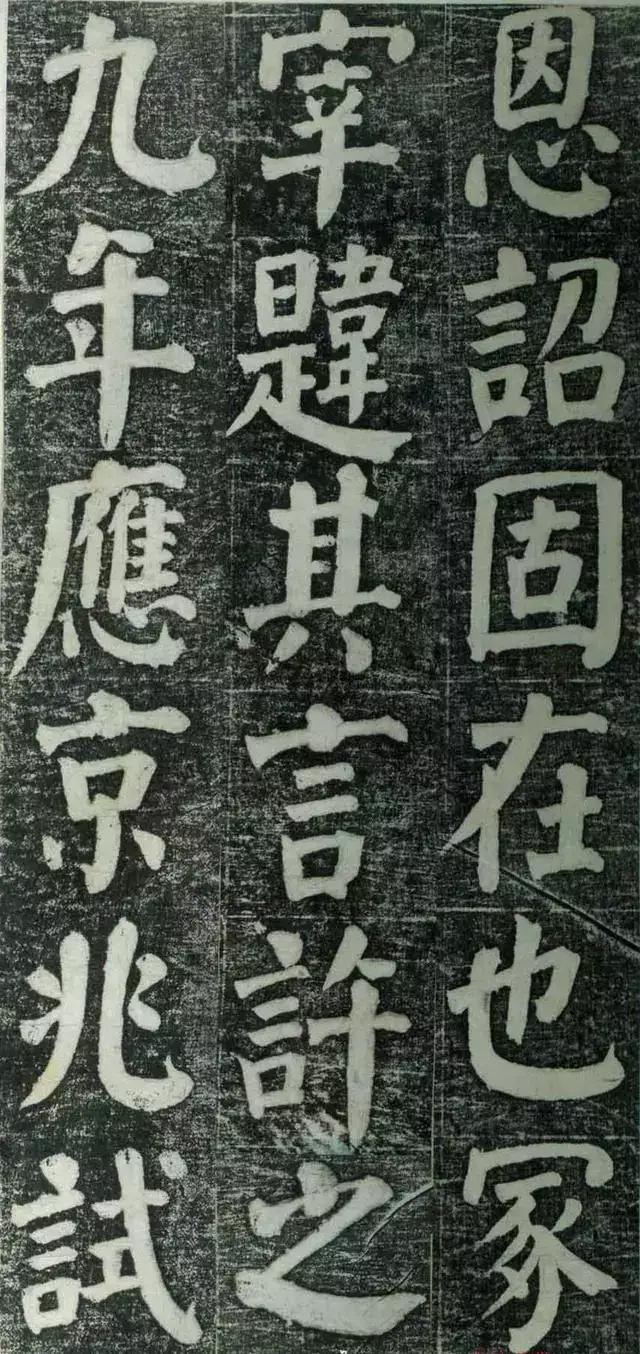 恩詔固在也冢
宰韙其言許之
九年應京兆試